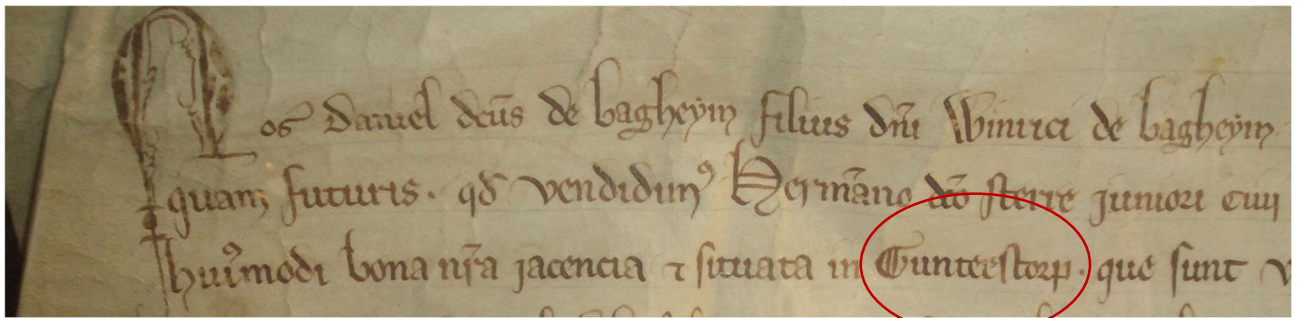 Nos Daniel dcus de bagheym filius dni Winrici de bagheym
quam futuris. qd vendidim9 Hermano dco sterre juniori civi
huiusmodi bona nra jacencia ⁊ situata in Gunterstorp. que sunt